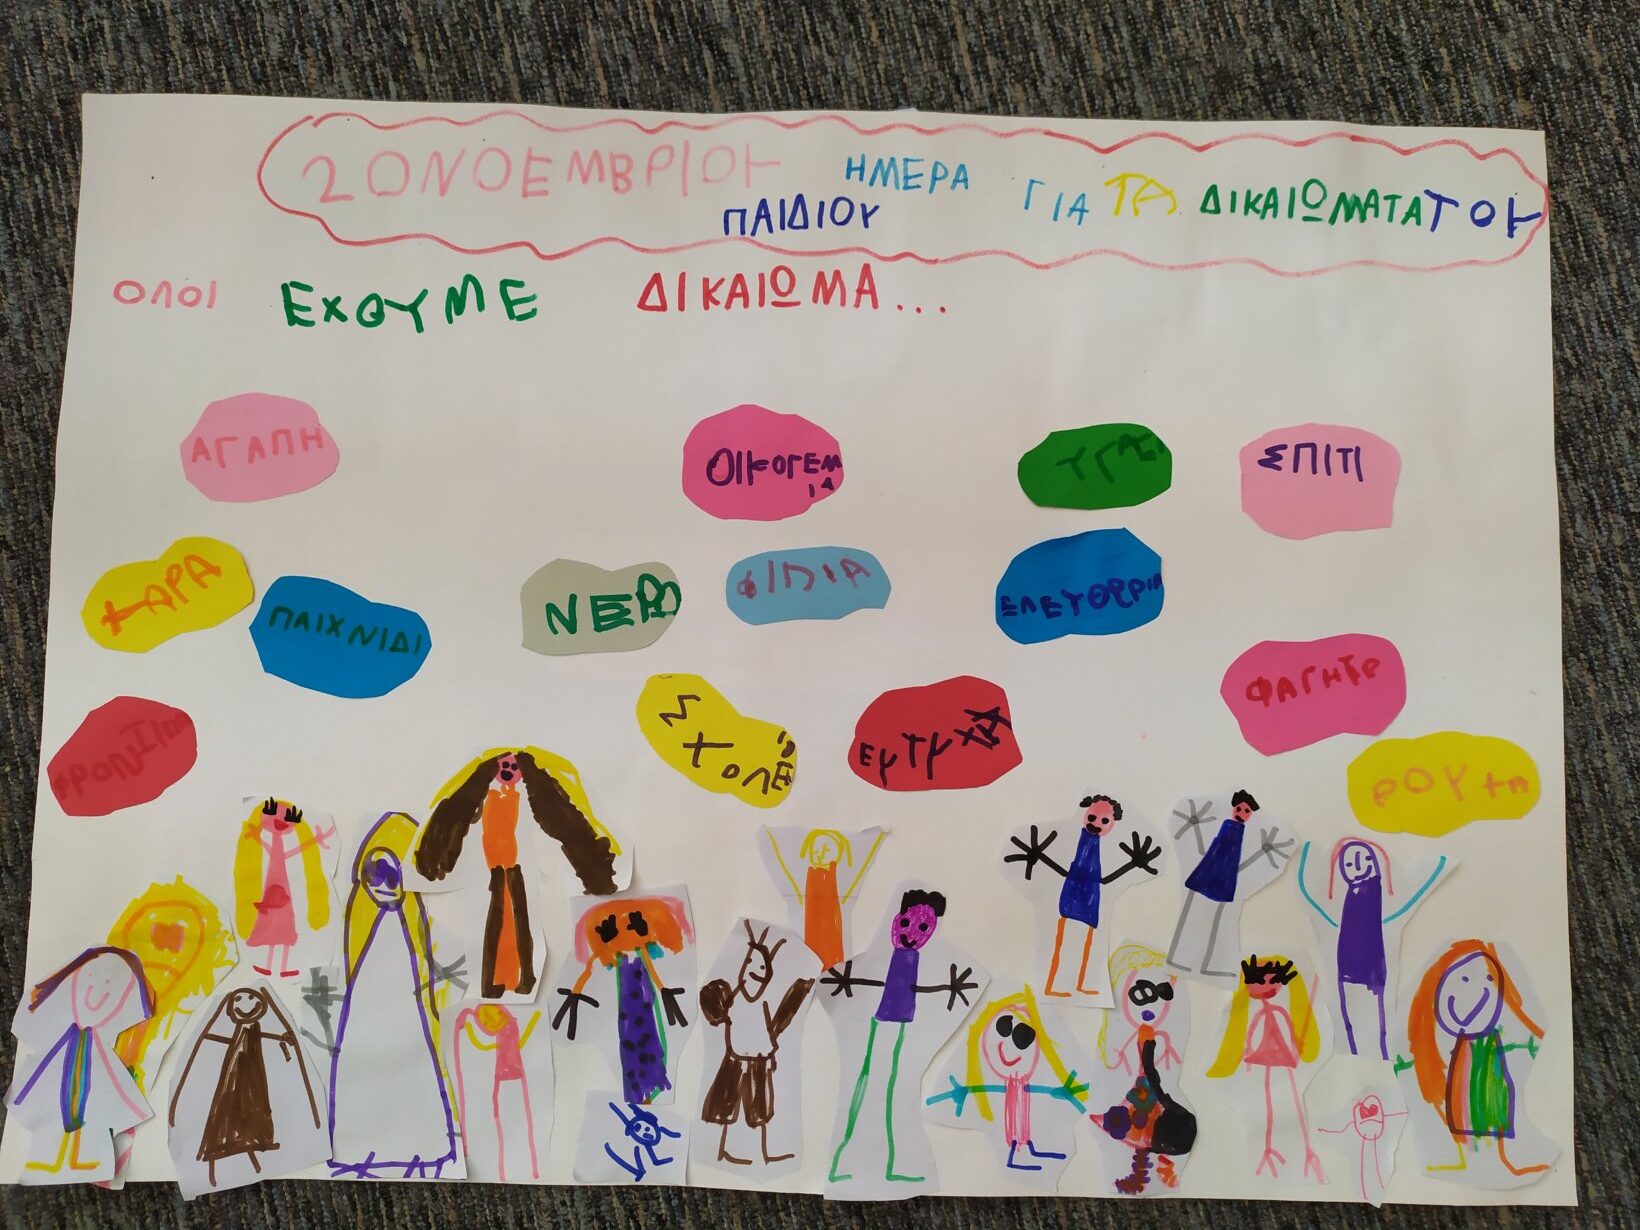 20 ΝΟΕΜΒΡΙΟΥ ΗΜΕΡΑ ΓΙΑ ΤΑ ΔΙΚΑΙΩΜΑΤΑ ΤΟΥ
ΠΑΙΔΙΟΥ
ΟΛΟΙ ΕΧΟΥΜΕ ΔΙΚΑΙΩΜΑ...
ΑΓΑΠΗ
ΟΙΚΟΓΕΝ
ΙΑ
ΣΠΙΤΙ
ΧΑΡΑ
ΠΑΙΧΝΙΔΙ
ΝΕΡΟ
ΦΙΛΙΑ
ΕΛΕΥΘΕΡΙΑ
ΦΑΓΗΤΟ
ΣΧΟΛΕΙΟ
ΕΥΤΥΧΙΑ
ΡΟΥΧΑ